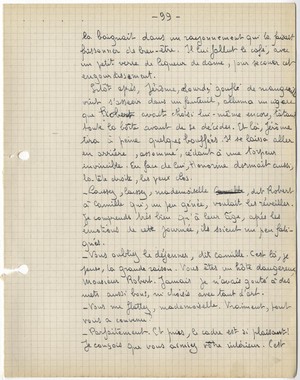 - 99 -
la baignait dans un rayonnement qui le faisait
frissonner de bien-être. Il lui fallut le café, avec
un petit verre de liqueur de dame, pour secouer cet
engourdissement.
Sitôt après, Jérôme, lourd, gonflé de mangeaille,
vint s'asseoir dans un fauteuil, alluma un cigare
que Robert avait choisi lui-même encore, tâtant
toute la boîte avant de se décider. Et là, Jérôme
tira à peine quelques bouffées. Il se laissa aller
en arrière, assommé, cédant à une torpeur
invincible. En face de lui, Honorine dormait aussi,
la tête droite, les yeux clos.
- Laissez, laissez, mademoiselle, dit Robert
à Camille qui, un peu gênée, voulait les réveiller.
Je comprends très bien qu'à leur âge, après les
émotions de cette journée, ils soient un peu fati-
gués.
- Vous oubliez le déjeuner, dit Camille. C'est là, je
pense, la grande raison. Vous êtes un hôte dangereux
monsieur Robert. Jamais je n'avais goûté à des
mets aussi bons, ni choisis avec tant d'art.
- Vous me flattez, mademoiselle. Vraiment, ça
vous a convenu ?
- Parfaitement. Et puis, le cadre est si plaisant !
Je conçois que vous aimiez votre intérieur. C'est